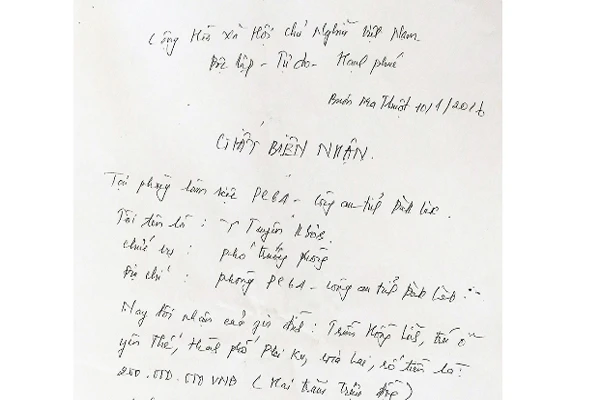 Cộng Hòa xã Hội chủ Nghĩa Việt Nam
Độc lập - Tự do - Hạnh phúc
Buôn Ma Thuột 10/1/2016
GIẤY BIÊN NHẬN.
Tại phòng làm việc PC61 - Công an tỉnh Đắk Lắk.
Tôi tên là : Tuyên
chức vụ : phó trưởng phòng
Địa chỉ : phòng PC61 - Công an tỉnh Đắk Lắk
Nay tôi nhận của gia đình : Trần Hồng trú ở
yên Thế, thành phố Plei Ku, Gia Lai, số tiền là :
200.000.000 VNĐ ( Hai trăm triệu đồng )